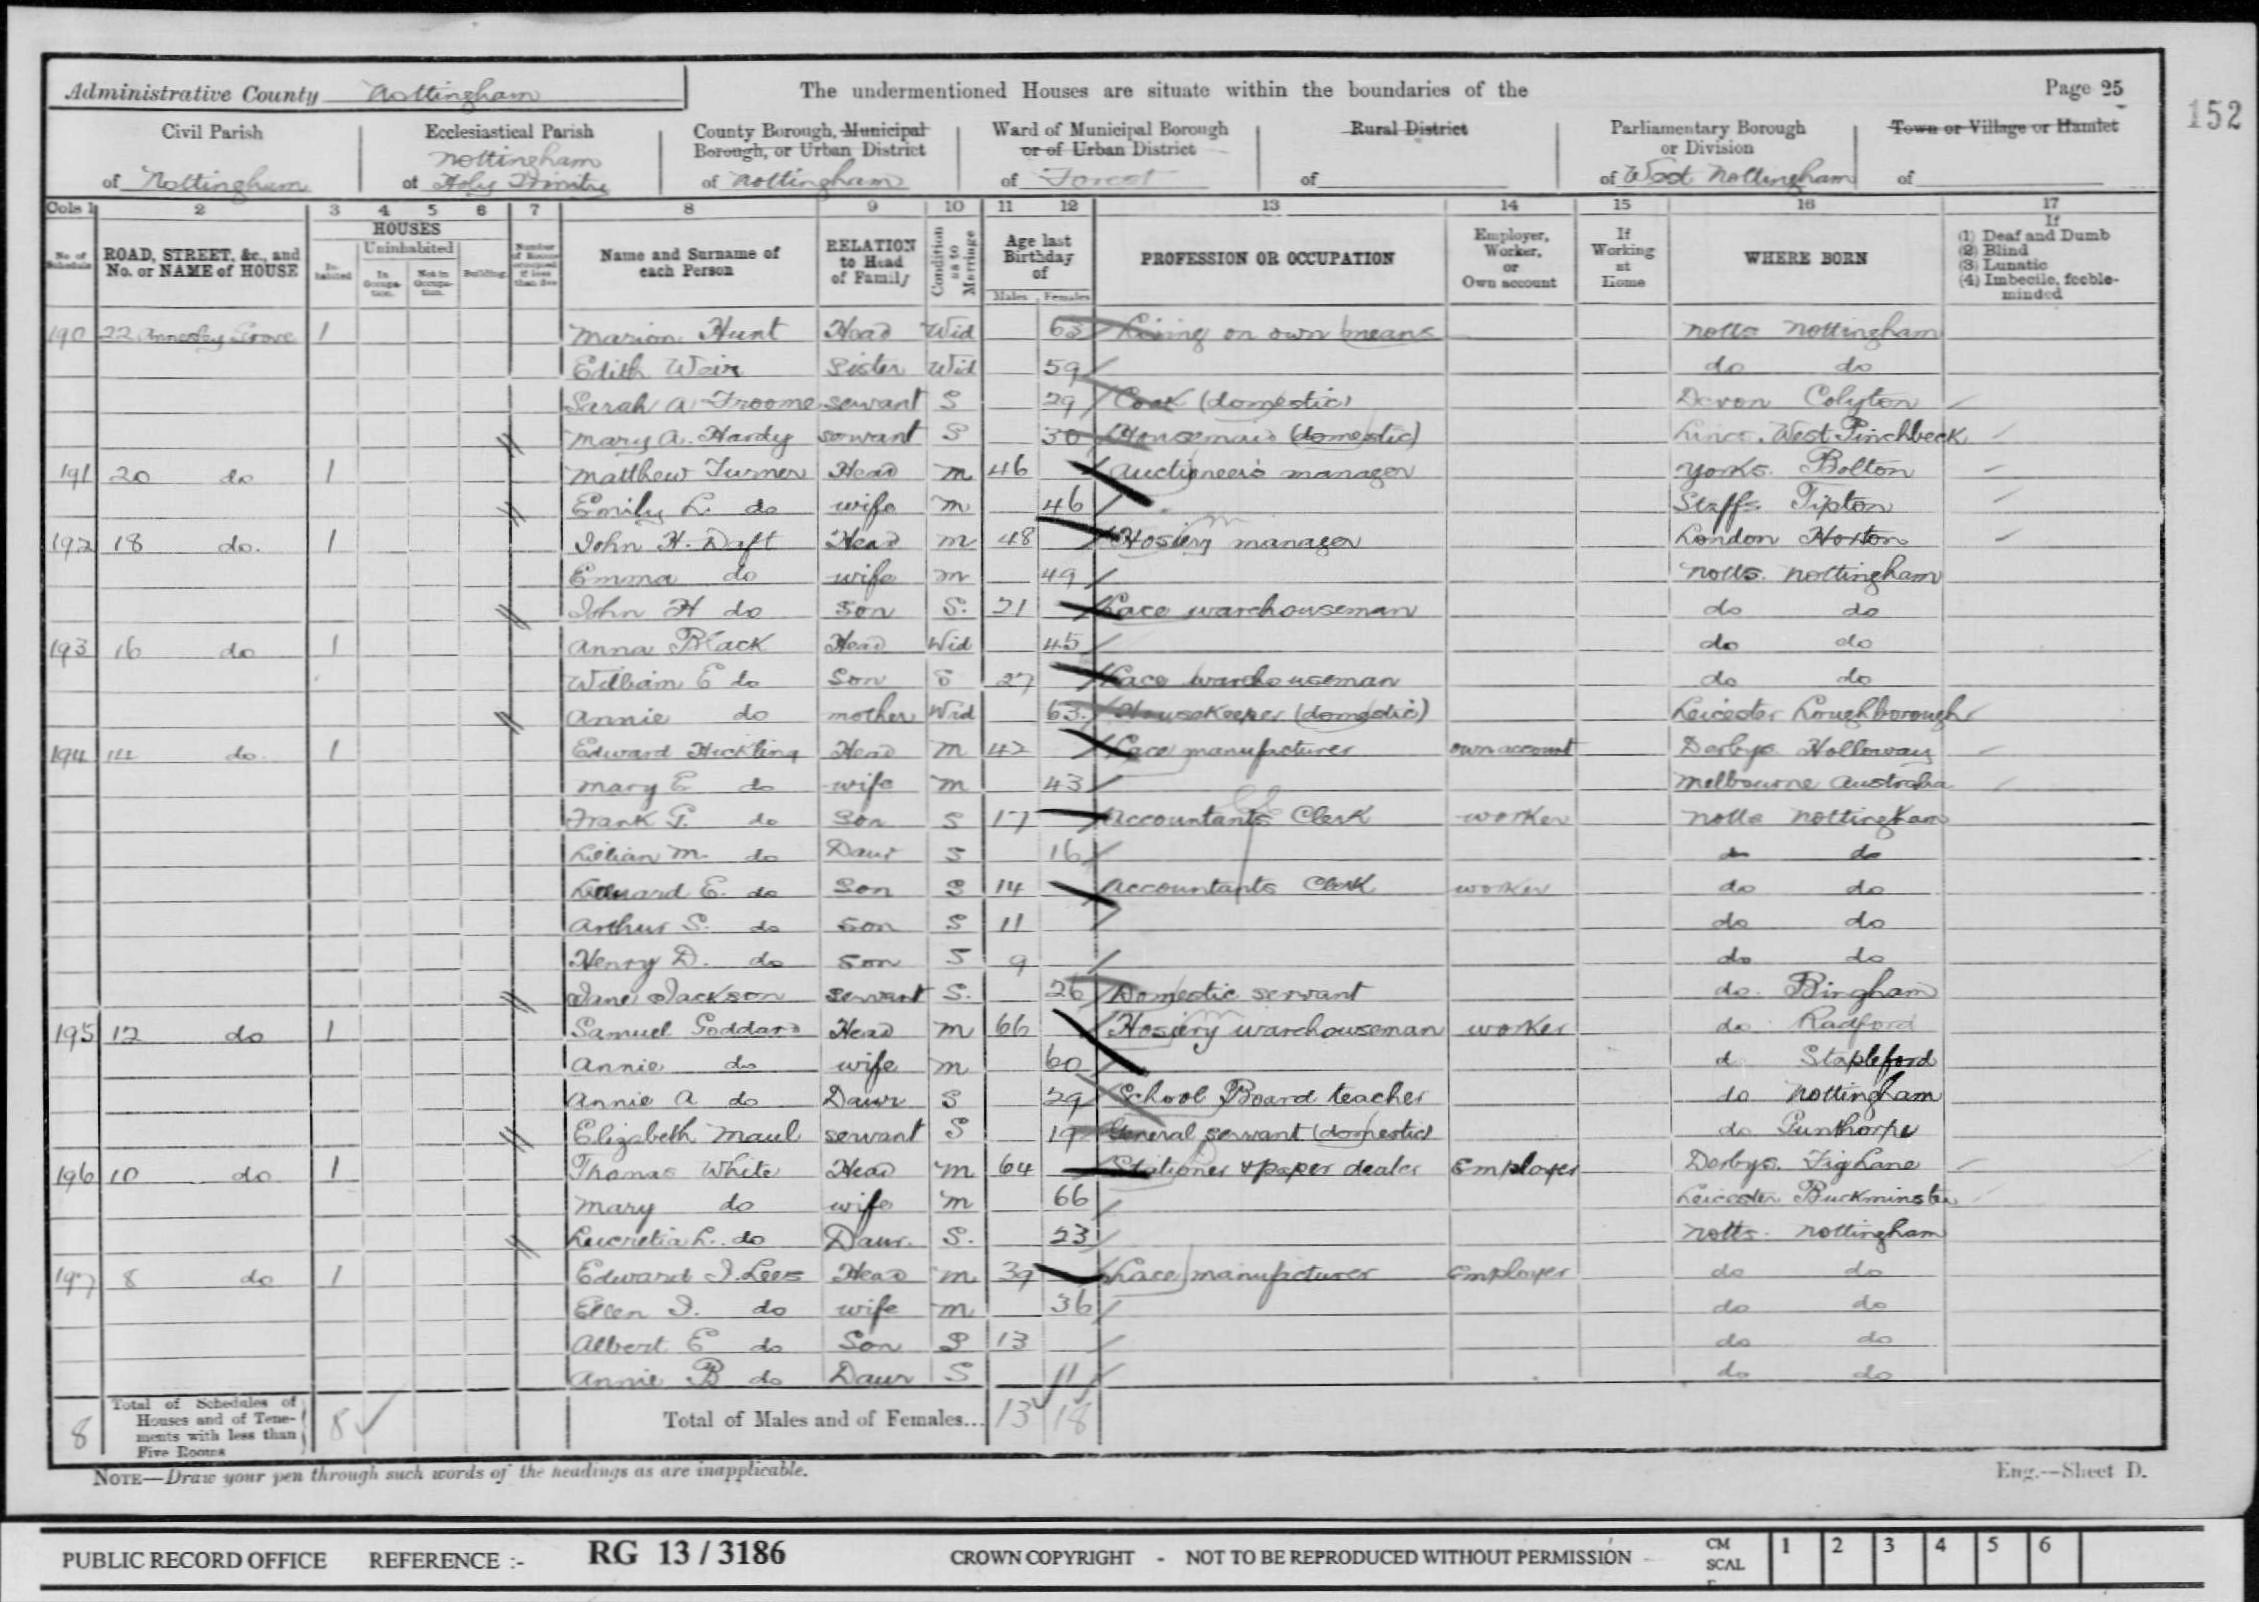 Administrative County Nottingham The undermentioned Houses are situate within the boundaries of the Page 25
152
Civil Parish of Nottingham
Ecclesiastical Parish of Nottingham Holy Trinity
County Borough, Municipal Borough, or Urban District of Nottingham
Ward of Municipal Borough or of Urban District of Forest
Rural District of
Parliamentary Borough or Division of West Nottingham
Town or Village or Hamlet of
Cols 1 2 3 4 5 6 7 8 9 10 11 12 13 14 15 16 17
No. of Schedule
ROAD, STREET, &c., and No. or NAME of HOUSE
HOUSES
Inhabited
Uninhabited
In Occupation.
Not in Occupation.
Building.
Number of Rooms occupied if less than five
Name and Surname of each Person
RELATION to Head of Family
Condition as to Marriage
Age last Birthday of
Males Females
PROFESSION OR OCCUPATION
Employer, Worker, or Own account
If Working at Home
WHERE BORN
If
(1) Deaf and Dumb
(2) Blind
(3) Lunatic
(4) Imbecile, feeble-minded
190 22 Annesley Grove 1 Marion Hunt Head Wid 63 Living on own means Notts Nottingham
Edith Weir Sister Wid 59 do do
Sarah A Froome servant S 29 Cook (domestic) Devon Colyton
Mary A. Hardy servant S 30 Housemaid (domestic) Lincs. West Pinchbeck
191 20 do 1 Matthew Turner Head M 46 Auctioneer's manager Yorks. Bolton
Emily L. do wife M 46 Staffs. Tipton
192 18 do. 1 John H. Daft Head M 48 Hosiery manager London Hoxton
Emma do wife M 49 Notts. Nottingham
John H do son S. 21 Lace warehouseman do do
193 16 do 1 Anna Black Head Wid 45 do do
William E do Son S 27 Lace warehouseman do do
Annie do mother Wid 63. Housekeeper (domestic) Leicester Loughborough
194 14 do. 1 Edward Hickling Head M 42 Lace manufacturer own account Derbys. Holloway
Mary E do wife M 43 Melbourne Australia
Frank G. do Son S 17 Accountants Clerk worker Notts Nottingham
Lilian M. do Daur S 16 do do
Leonard E. do Son S 14 Accountants Clerk worker do do
Arthur S. do son S 11 do do
Henry D. do son S 9 do do
Jane Jackson servant S. 26 Domestic servant do. Bingham
195 12 do 1 Samuel Goddard Head M 66 Hosiery warehouseman worker do Radford
Annie do wife M 60 d Stapleford
Annie A do Daur S 29 School Board teacher do Nottingham
Elizabeth Maul servant S 19 General servant (domestic) do Gunthorpe
196 10 do 1 Thomas White Head M 64 Stationer & paper dealer Employer Derbys. Fig Lane
Mary do wife M 66 Leicester Buckminster
Lucretia L. do Daur. S. 23 Notts. Nottingham
197 8 do 1 Edward I. Lees Head M 39 Lace manufacturer Employer do do
Ellen I. do wife M 36 do do
Albert E do Son S 13 do do
Annie B do Daur S 11 do do
8 Total of Schedules of Houses and of Tenements with less than Five Rooms 8 Total of Males and of Females... 13 18
NOTE—Draw your pen through such words of the headings as are inapplicable. Eng.—Sheet D.
PUBLIC RECORD OFFICE REFERENCE :- RG 13 / 3186 CROWN COPYRIGHT - NOT TO BE REPRODUCED WITHOUT PERMISSION CM SCAL 1 2 3 4 5 6